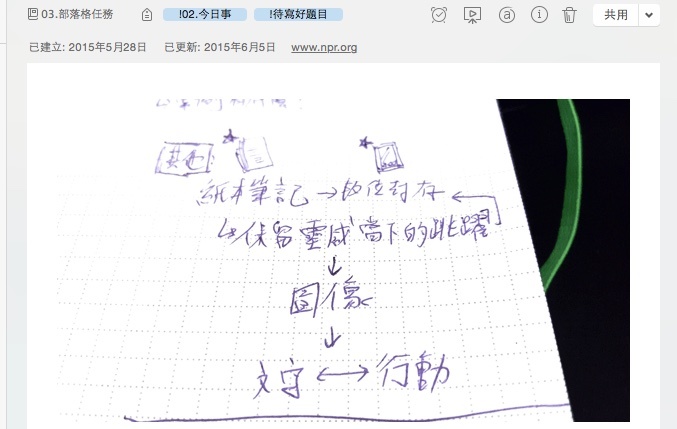 03.部落格任務 !02.今日事 !待寫好題目 共用
已建立: 2015年5月28日 已更新: 2015年6月5日 www.npr.org
其他
紙本筆記→數位封存
↳保留靈感當下的跳躍
↓
圖像
↓
文字↔行動